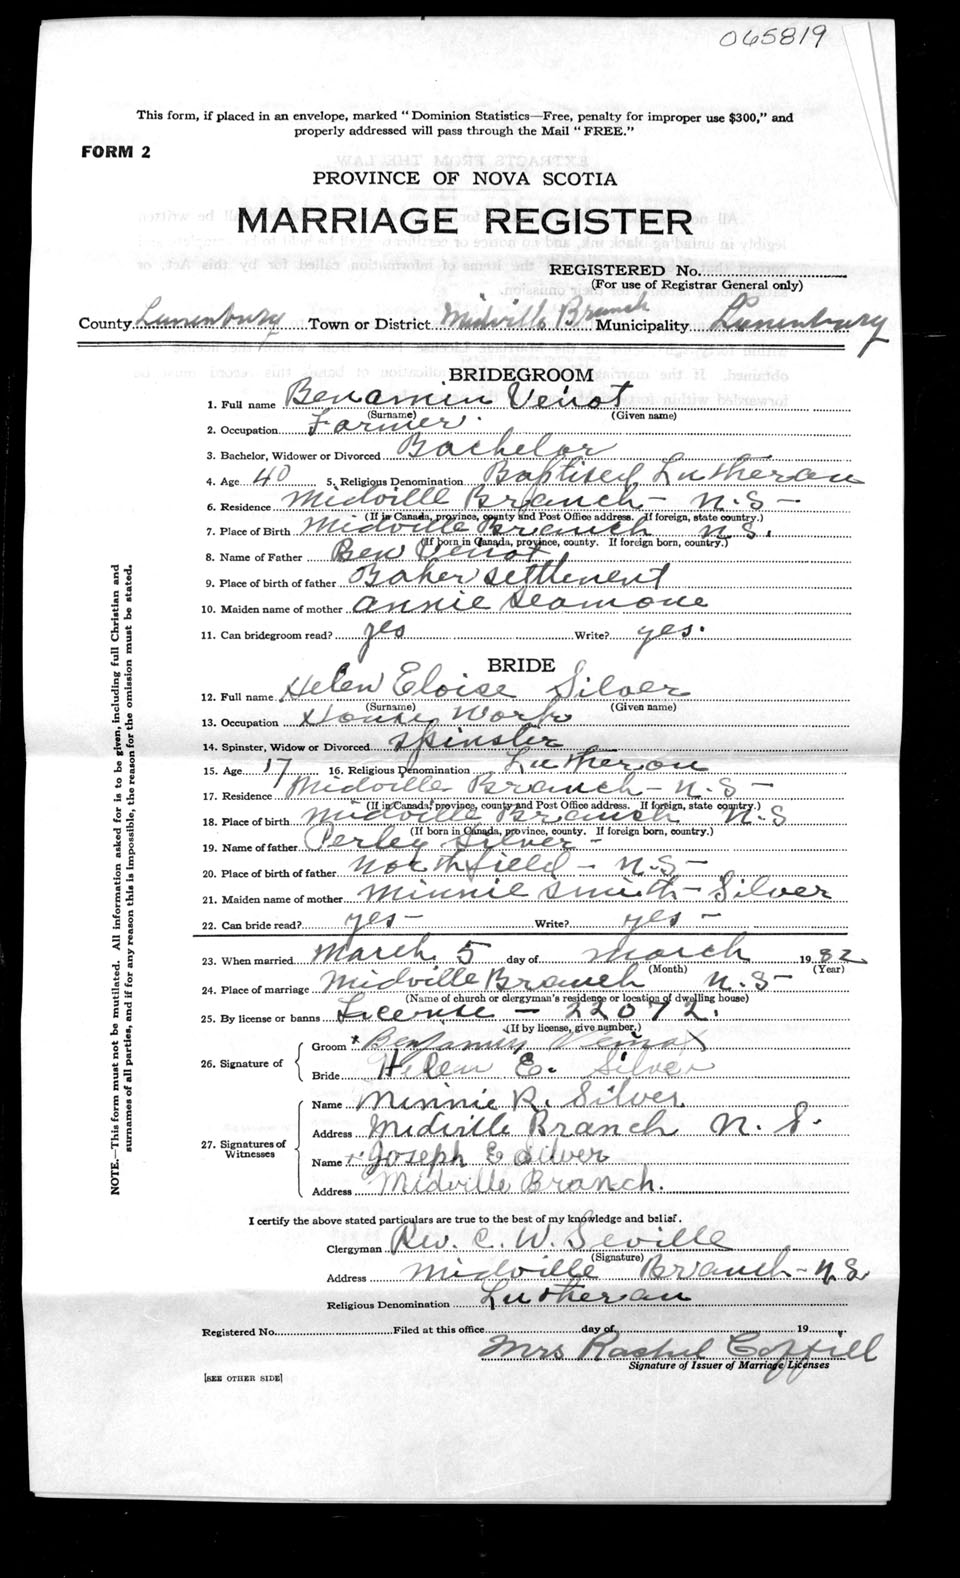 065819
This form, if placed in an envelope, marked "Dominion Statistics—Free, penalty for improper use $300," and
properly addressed will pass through the Mail "FREE."
FORM 2
PROVINCE OF NOVA SCOTIA
MARRIAGE REGISTER
REGISTERED No.
(For use of Registrar General only)
County Lunenburg Town or District Midville Branch Municipality Lunenburg
BRIDEGROOM
1. Full name Benamin Veinot
(Surname) (Given name)
2. Occupation Farmer.
3. Bachelor, Widower or Divorced Bachelor
4. Age 40 5. Religious Denomination Baptised Lutheran
6. Residence Midville Branch - N.S -
(If in Canada, province, county and Post Office address. If foreign, state country.)
7. Place of Birth Midville Branch N.S.
(If born in Canada, province, county. If foreign born, country.)
8. Name of Father Ben Veinot
9. Place of birth of father Baker settlement
10. Maiden name of mother annie Seamone
11. Can bridegroom read? yes Write? yes.
BRIDE
12. Full name Helen Eloise Silver
(Surname) (Given name)
13. Occupation House Work
14. Spinster, Widow or Divorced Spinster
15. Age 17 16. Religious Denomination Lutheran
17. Residence Midville Branch - N.S -
(If in Canada, province, county and Post Office address. If foreign, state country.)
18. Place of birth Midville Branch N.S
(If born in Canada, province, county. If foreign born, country.)
19. Name of father Perley Silver -
20. Place of birth of father Northfield - N.S -
21. Maiden name of mother Minnie Smith - Silver
22. Can bride read? yes - Write? yes -
23. When married March 5 day of March 1932
(Month) (Year)
24. Place of marriage Midville Branch N.S -
(Name of church or clergyman's residence or location of dwelling house)
25. By license or banns License - 22072.
(If by license, give number.)
26. Signature of
Groom x Benjamin Veinot
Bride Helen E. Silver
27. Signatures of Witnesses
Name Minnie R. Silver
Address Midville Branch N. S.
Name x Joseph E Silver
Address Midville Branch.
I certify the above stated particulars are true to the best of my knowledge and belief.
Clergyman Rev. C. W. Seville
(Signature)
Address Midville Branch - N.S.
Religious Denomination Lutheran
Registered No. Filed at this office day of 19
Mrs Rachel Coffill
Signature of Issuer of Marriage Licenses
[SEE OTHER SIDE]
NOTE.—This form must not be mutilated. All information asked for is to be given, including full Christian and
surnames of all parties, and if for any reason this is impossible, the reason for the omission must be stated.